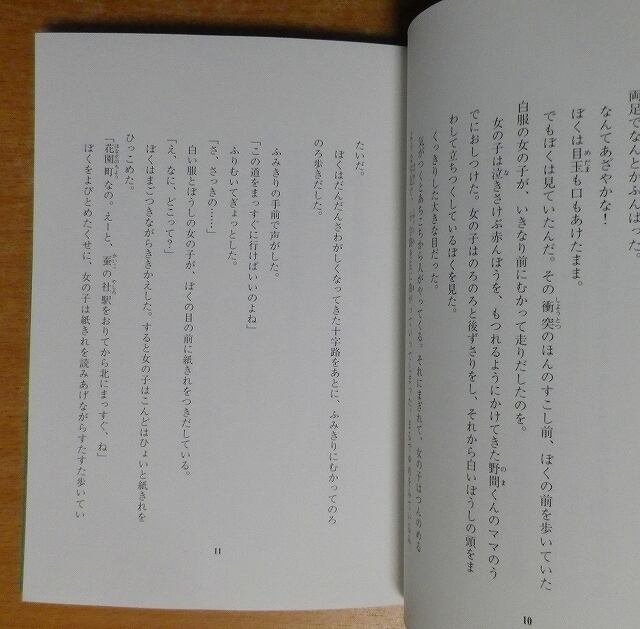 両足でなんとかふんばった。
なんてあざやかな!
ぼくは目玉も口もあけたまま。
でもぼくは見ていたんだ。その衝突のほんのすこし前、ぼくの前を歩いていた
白服の女の子が、いきなり前にむかって走りだしたのを。
女の子は泣きさけぶ赤んぼうを、もつれるようにかけてきた野間くんのママのう
でにおしつけた。女の子はのろのろと後ずさりをし、それから白いぼうしの頭をま
わして立ちつくしているぼくを見た。
くっきりした大きな目だった。
気がつくとあちこちから人がやってくる。それにまぎれて、女の子はつんのめる
10
たいだ。
ぼくはだんだんさわがしくなってきた十字路をあとに、ふみきりにむかってのろ
のろ歩きだした。
ふみきりの手前で声がした。
「この道をまっすぐに行けばいいのよね」
ふりむいてぎょっとした。
「さ、さっきの……」
白い服とぼうしの女の子が、ぼくの目の前に紙きれをつきだしている。
「え、なに、どこって?」
ぼくはまごつきながらききかえした。すると女の子はこんどはひょいと紙きれを
ひっこめた。
「花園町なの。えーと、蚕の社駅をおりてから北にまっすぐ、ね」
ぼくをよびとめたくせに、女の子は紙きれを読みあげながらすたすた歩いてい
11